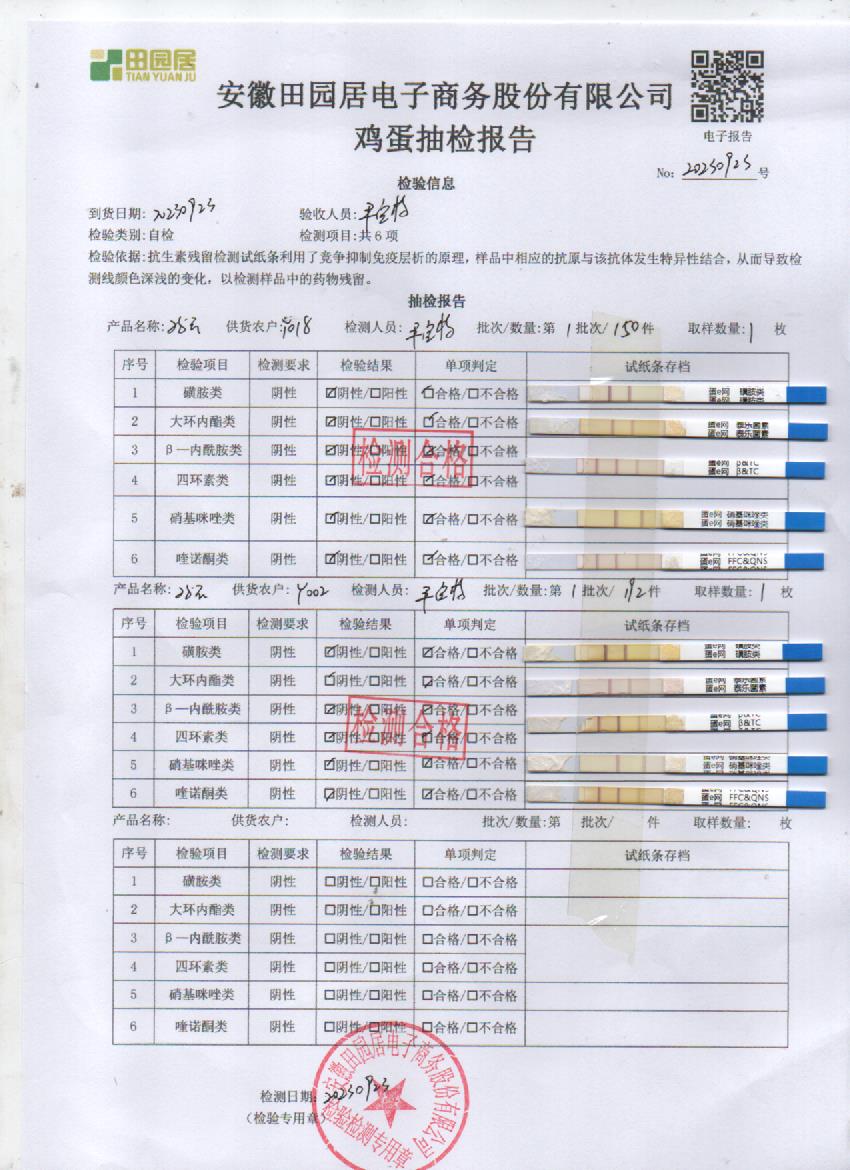 田园居
TIAN YUAN JU
安徽田园居电子商务股份有限公司
鸡蛋抽检报告
电子报告
No: 20230923 号
检验信息
到货日期: 20230923 验收人员:
检验类别:自检 检测项目:共6项
检验依据:抗生素残留检测试纸条利用了竞争抑制免疫层析的原理,样品中相应的抗原与该抗体发生特异性结合,从而导致检
测线颜色深浅的变化,以检测样品中的药物残留。
抽检报告
产品名称: 供货农户: 检测人员: 批次/数量:第 1 批次/ 150 件 取样数量: 1 枚
序号 检验项目 检测要求 检验结果 单项判定 试纸条存档
1 磺胺类 阴性 ☑阴性/□阳性 ☑合格/□不合格 蛋e网 磺胺类
2 大环内酯类 阴性 ☑阴性/□阳性 ☑合格/□不合格 蛋e网 泰乐菌素
3 β—内酰胺类 阴性 ☑阴性/□阳性 ☑合格/□不合格 蛋e网 β&TC
4 四环素类 阴性 ☑阴性/□阳性 ☑合格/□不合格
5 硝基咪唑类 阴性 ☑阴性/□阳性 ☑合格/□不合格 蛋e网 硝基咪唑类
6 喹诺酮类 阴性 ☑阴性/□阳性 ☑合格/□不合格 蛋e网 FFC&QNS
检测合格
产品名称: 供货农户: Y002 检测人员: 批次/数量:第 1 批次/ 192 件 取样数量: 1 枚
序号 检验项目 检测要求 检验结果 单项判定 试纸条存档
1 磺胺类 阴性 ☑阴性/□阳性 ☑合格/□不合格 蛋e网 磺胺类
2 大环内酯类 阴性 ☑阴性/□阳性 ☑合格/□不合格 蛋e网 泰乐菌素
3 β—内酰胺类 阴性 ☑阴性/□阳性 ☑合格/□不合格 蛋e网 β&TC
4 四环素类 阴性 ☑阴性/□阳性 ☑合格/□不合格
5 硝基咪唑类 阴性 ☑阴性/□阳性 ☑合格/□不合格 蛋e网 硝基咪唑类
6 喹诺酮类 阴性 ☑阴性/□阳性 ☑合格/□不合格 蛋e网 FFC&QNS
检测合格
产品名称: 供货农户: 检测人员: 批次/数量:第 批次/ 件 取样数量: 枚
序号 检验项目 检测要求 检验结果 单项判定 试纸条存档
1 磺胺类 阴性 □阴性/□阳性 □合格/□不合格
2 大环内酯类 阴性 □阴性/□阳性 □合格/□不合格
3 β—内酰胺类 阴性 □阴性/□阳性 □合格/□不合格
4 四环素类 阴性 □阴性/□阳性 □合格/□不合格
5 硝基咪唑类 阴性 □阴性/□阳性 □合格/□不合格
6 喹诺酮类 阴性 □阴性/□阳性 □合格/□不合格
检测日期: 20230923
(检验专用章)
安徽田园居电子商务股份有限公司
检验检测专用章